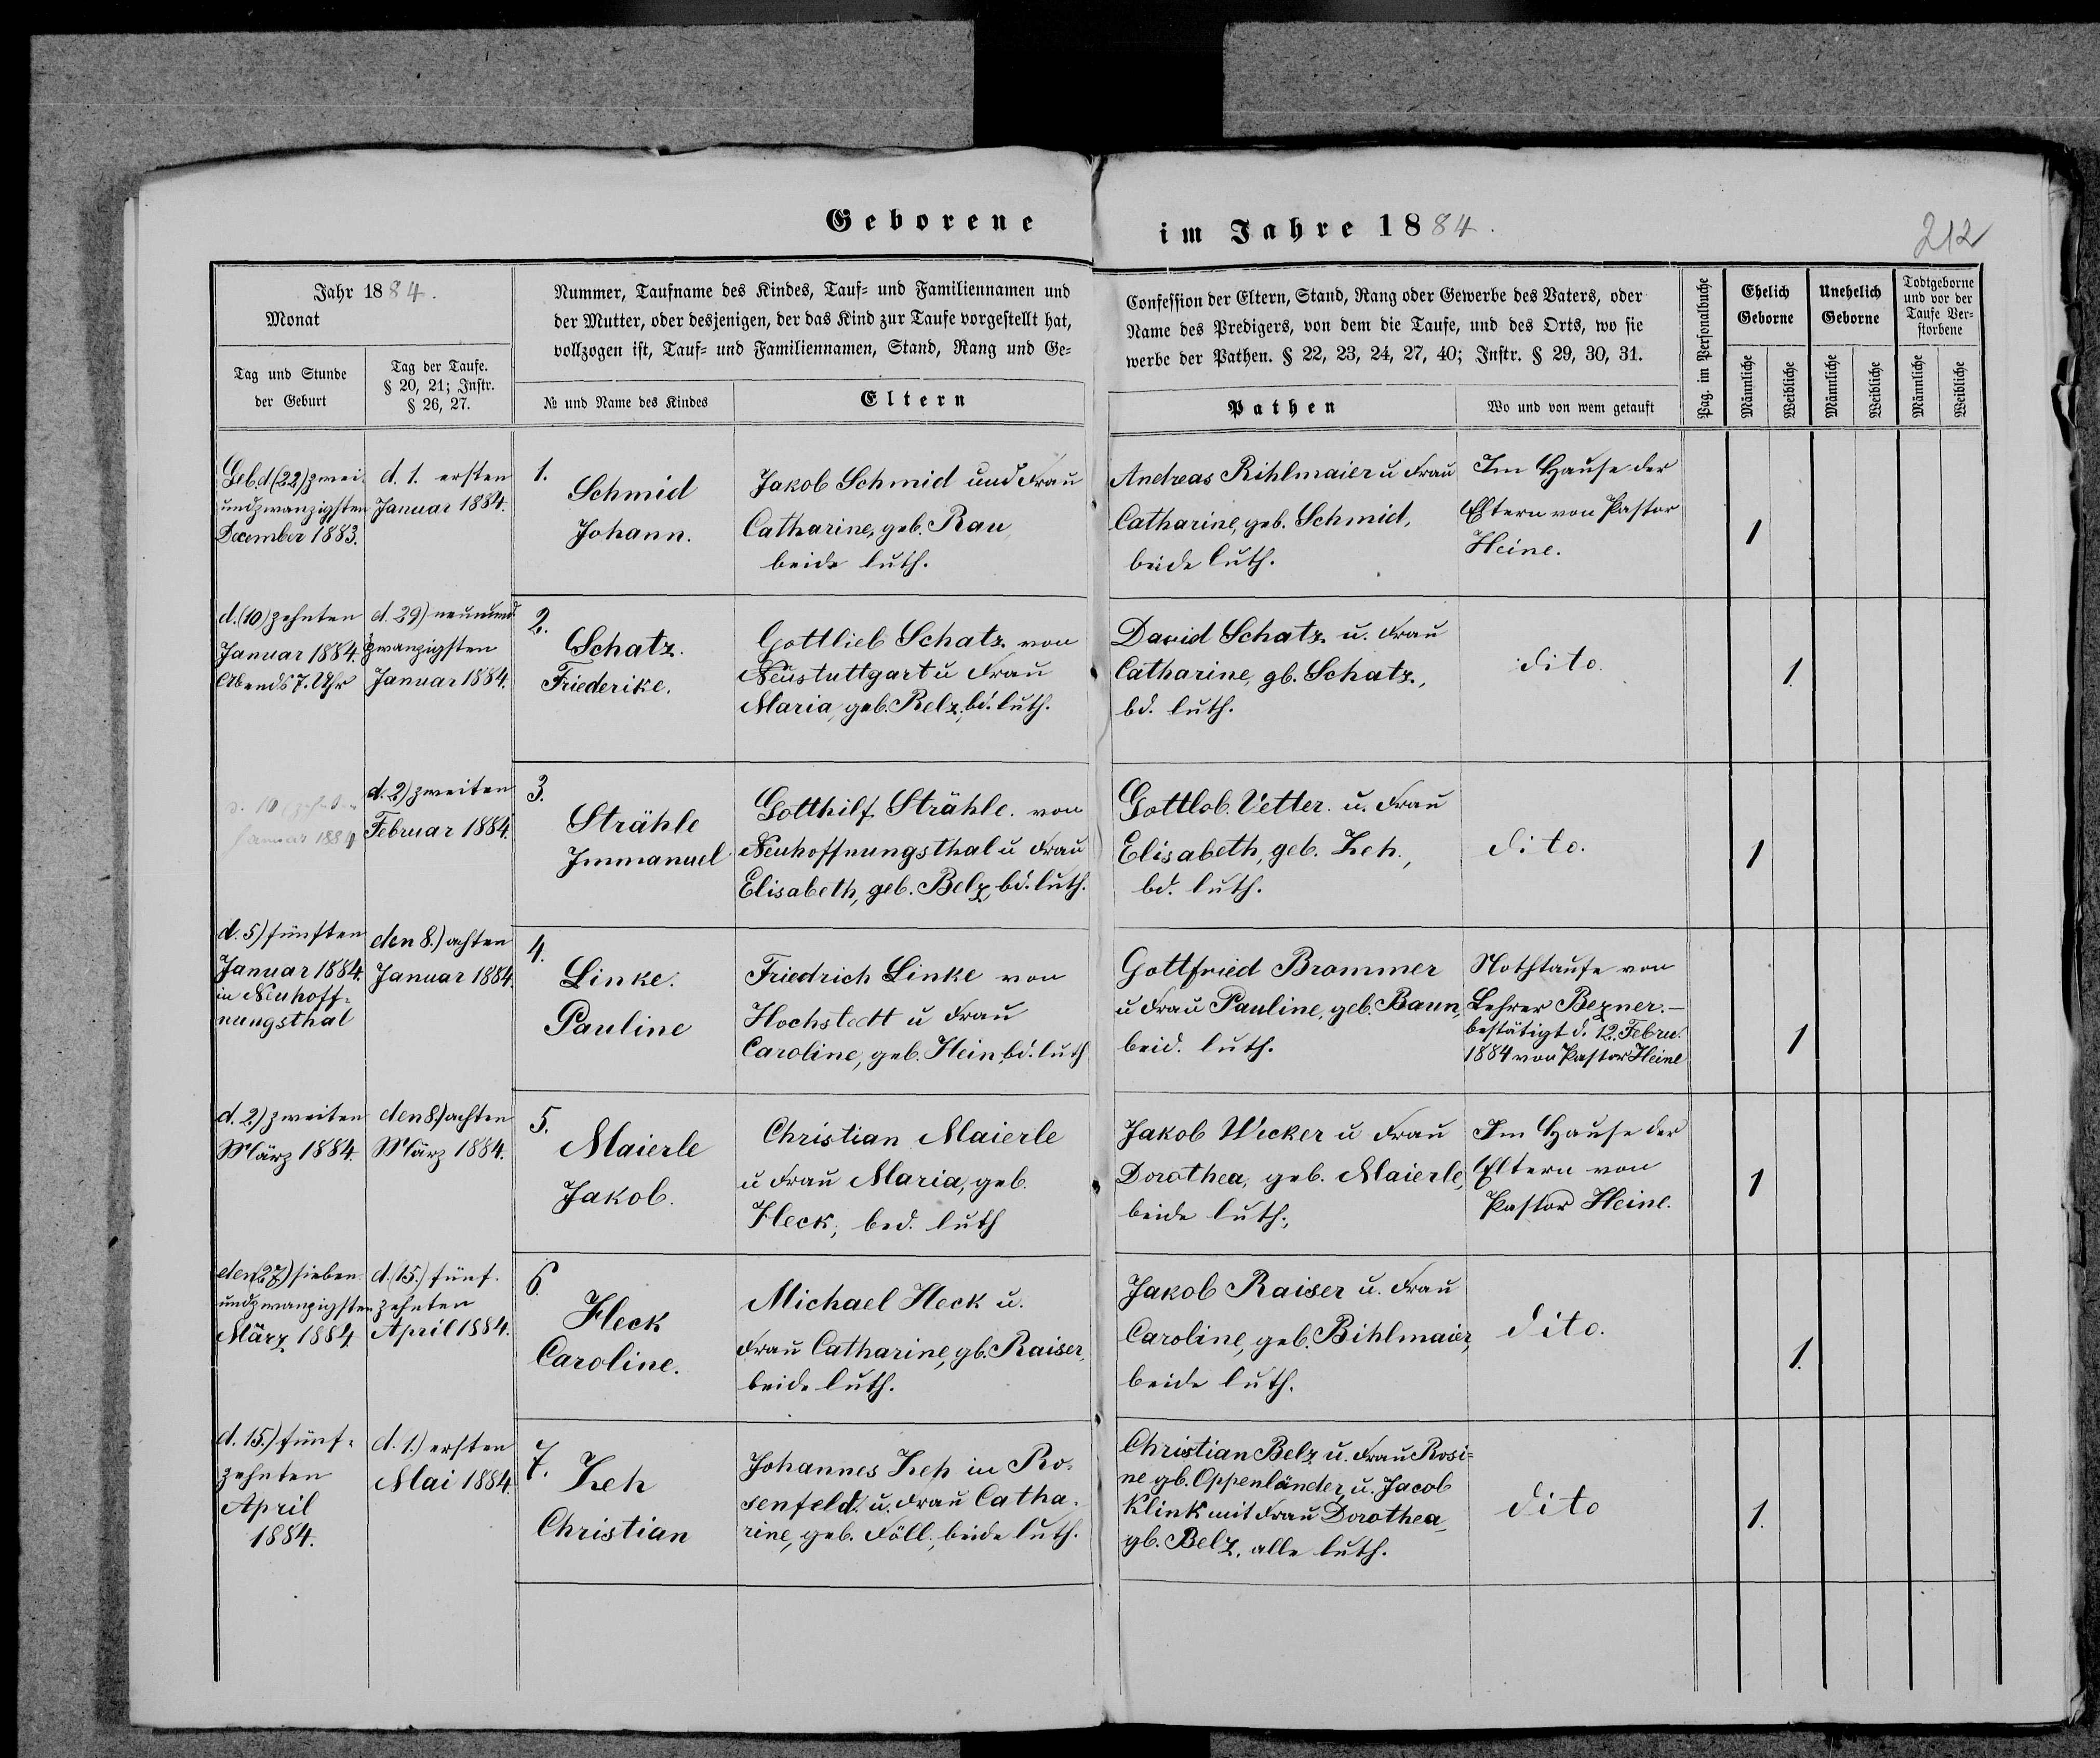 Geborene im Jahre 1884.
212
Jahr 1884.
Monat
Tag und Stunde
der Geburt
Tag der Taufe.
§ 20, 21; Instr.
§ 26, 27.
Nummer, Taufname des Kindes, Tauf- und Familiennamen und
der Mutter, oder desjenigen, der das Kind zur Taufe vorgestellt hat,
vollzogen ist, Tauf- und Familiennamen, Stand, Rang und Ge-
№ und Name des Kindes
Eltern
Confession der Eltern, Stand, Rang oder Gewerbe des Vaters, oder
Name des Predigers, von dem die Taufe, und des Orts, wo sie
werbe der Pathen. § 22, 23, 24, 27, 40; Instr. § 29, 30, 31.
Pathen
Wo und von wem getauft
Pag. im Personalbuche
Ehelich
Geborne
Unehelich
Geborne
Todtgeborne
und vor der
Taufe Ver-
storbene
Männliche
Weibliche
Männliche
Weibliche
Männliche
Weibliche
Geb. d (22) zwei-
undzwanzigsten
December 1883.
d. 1. ersten
Januar 1884.
1.
Schmid
Johann.
Jakob Schmid und Frau
Catharine, geb. Rau,
beide luth.
Andreas Bihlmaier u Frau
Catharine, geb. Schmid,
beide luth.
Im Hause der
Eltern von Pastor
Heine.
1
d. (10) zehnten
Januar 1884.
Abends 7. Uhr
d. 29) neunund
zwanzigsten
Januar 1884.
2.
Schatz.
Friederike.
Gottlieb Schatz von
Neustuttgart u Frau
Maria, geb. Belz, bd. luth.
David Schatz u. Frau
Catharine, gb. Schatz,
bd. luth.
dito.
1.
d. 10 (zehnten
Januar 1884
d. 2) zweiten
Februar 1884.
3.
Strähle
Immanuel
Gotthilf Strähle. von
Neuhoffnungsthal u Frau
Elisabeth, geb. Belz, bd. luth.
Gottlob. Vetter. u. Frau
Elisabeth, geb. Zeh.,
bd. luth.
dito.
1
d. 5) fünften
Januar 1884.
in Neuhoff-
nungsthal
den 8.) achten
Januar 1884.
4.
Linke.
Pauline
Friedrich Linke von
Hochstedt u Frau
Caroline, geb. Hein, bd. luth
Gottfried Brommer
u Frau Pauline, geb. Baun,
beid. luth.
Nothtaufe von
Lehrer Bezner. –
bestätigt d. 12. Febru.
1884 von Pastor Heine
1
d. 2) zweiten
März 1884.
den 8) achten
März 1884.
5.
Maierle
Jakob.
Christian Maierle
u Frau Maria, geb.
Fleck, bed. luth
Jakob Wecker u Frau
Dorothea, geb. Maierle,
beide luth.,
Im Hause der
Eltern von
Pastor Heine.
1
den (27) sieben
undzwanzigsten
März 1884.
d. (15.) fünf-
zehnten
April 1884.
6.
Fleck
Caroline.
Michael Fleck u.
Frau Catharine, gb. Raiser,
beide luth.
Jakob Raiser u. Frau
Caroline, geb. Bihlmaier,
beide luth.
dito.
1.
d. 15.) fünf-
zehnten
April
1884.
d. 1.) ersten
Mai 1884.
7.
Zeh
Christian
Johannes Zeh in Ro-
senfeld. u. Frau Catha-
rine, geb. Föll., beide luth.
Christian Belz u. Frau Rosi=
ne gb. Oppenländer, u. Jacob
Klink mit Frau Dorothea,
gb. Belz, alle luth.
dito
1.